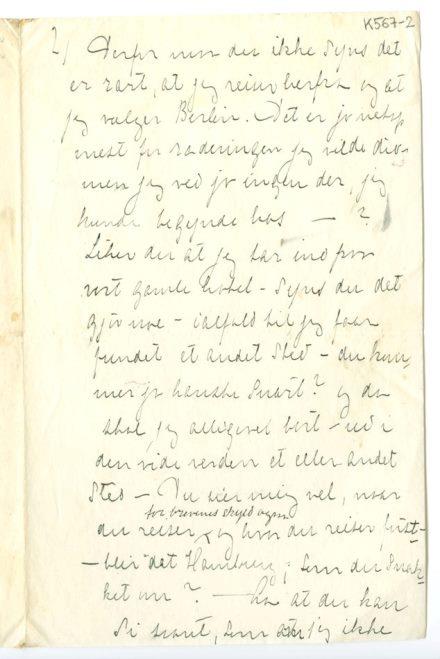 K567-2
2/ Derfor maa du ikke synes det
er rart, at jeg reiser herfra og at
jeg vælger Berlin. Det er jo netop
mest for raderingen jeg vilde did –
men jeg ved jo ingen der, jeg
kunde begynde hos — ?
Liker du at jeg tar ind paa
vort gamle hotel – Synes du det
gjør noe – ialfald til jeg faar
fundet et andet sted – du kom-
mer jo kanske snart? og da
skal jeg alligevel bort – ud i
den vide verden et eller andet
sted – Du sier mig vel, naar
for brevenes skyld ogsaa
du reiser, og hvor du reiser først –
– blir det Hamburg; som du snak-
ket om? — at du kan
si snart, som jeg ikke